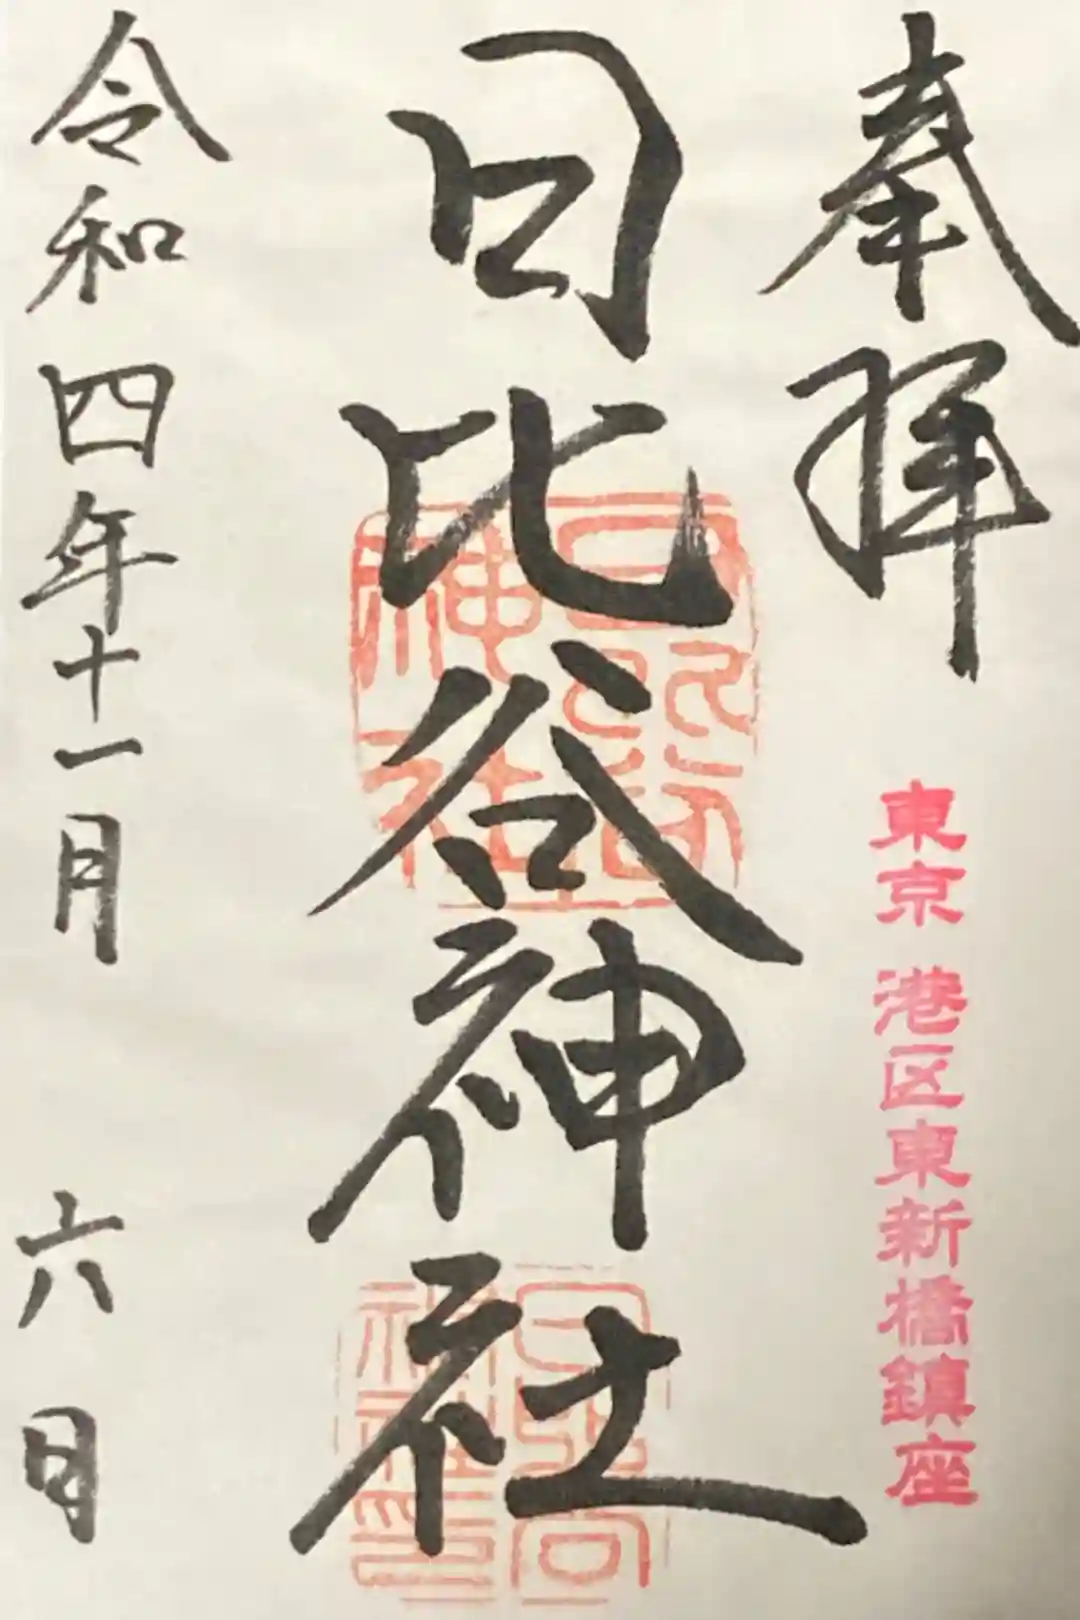 奉拝
東京 港区東新橋鎮座
日比谷神社
令和四年十一月 六日